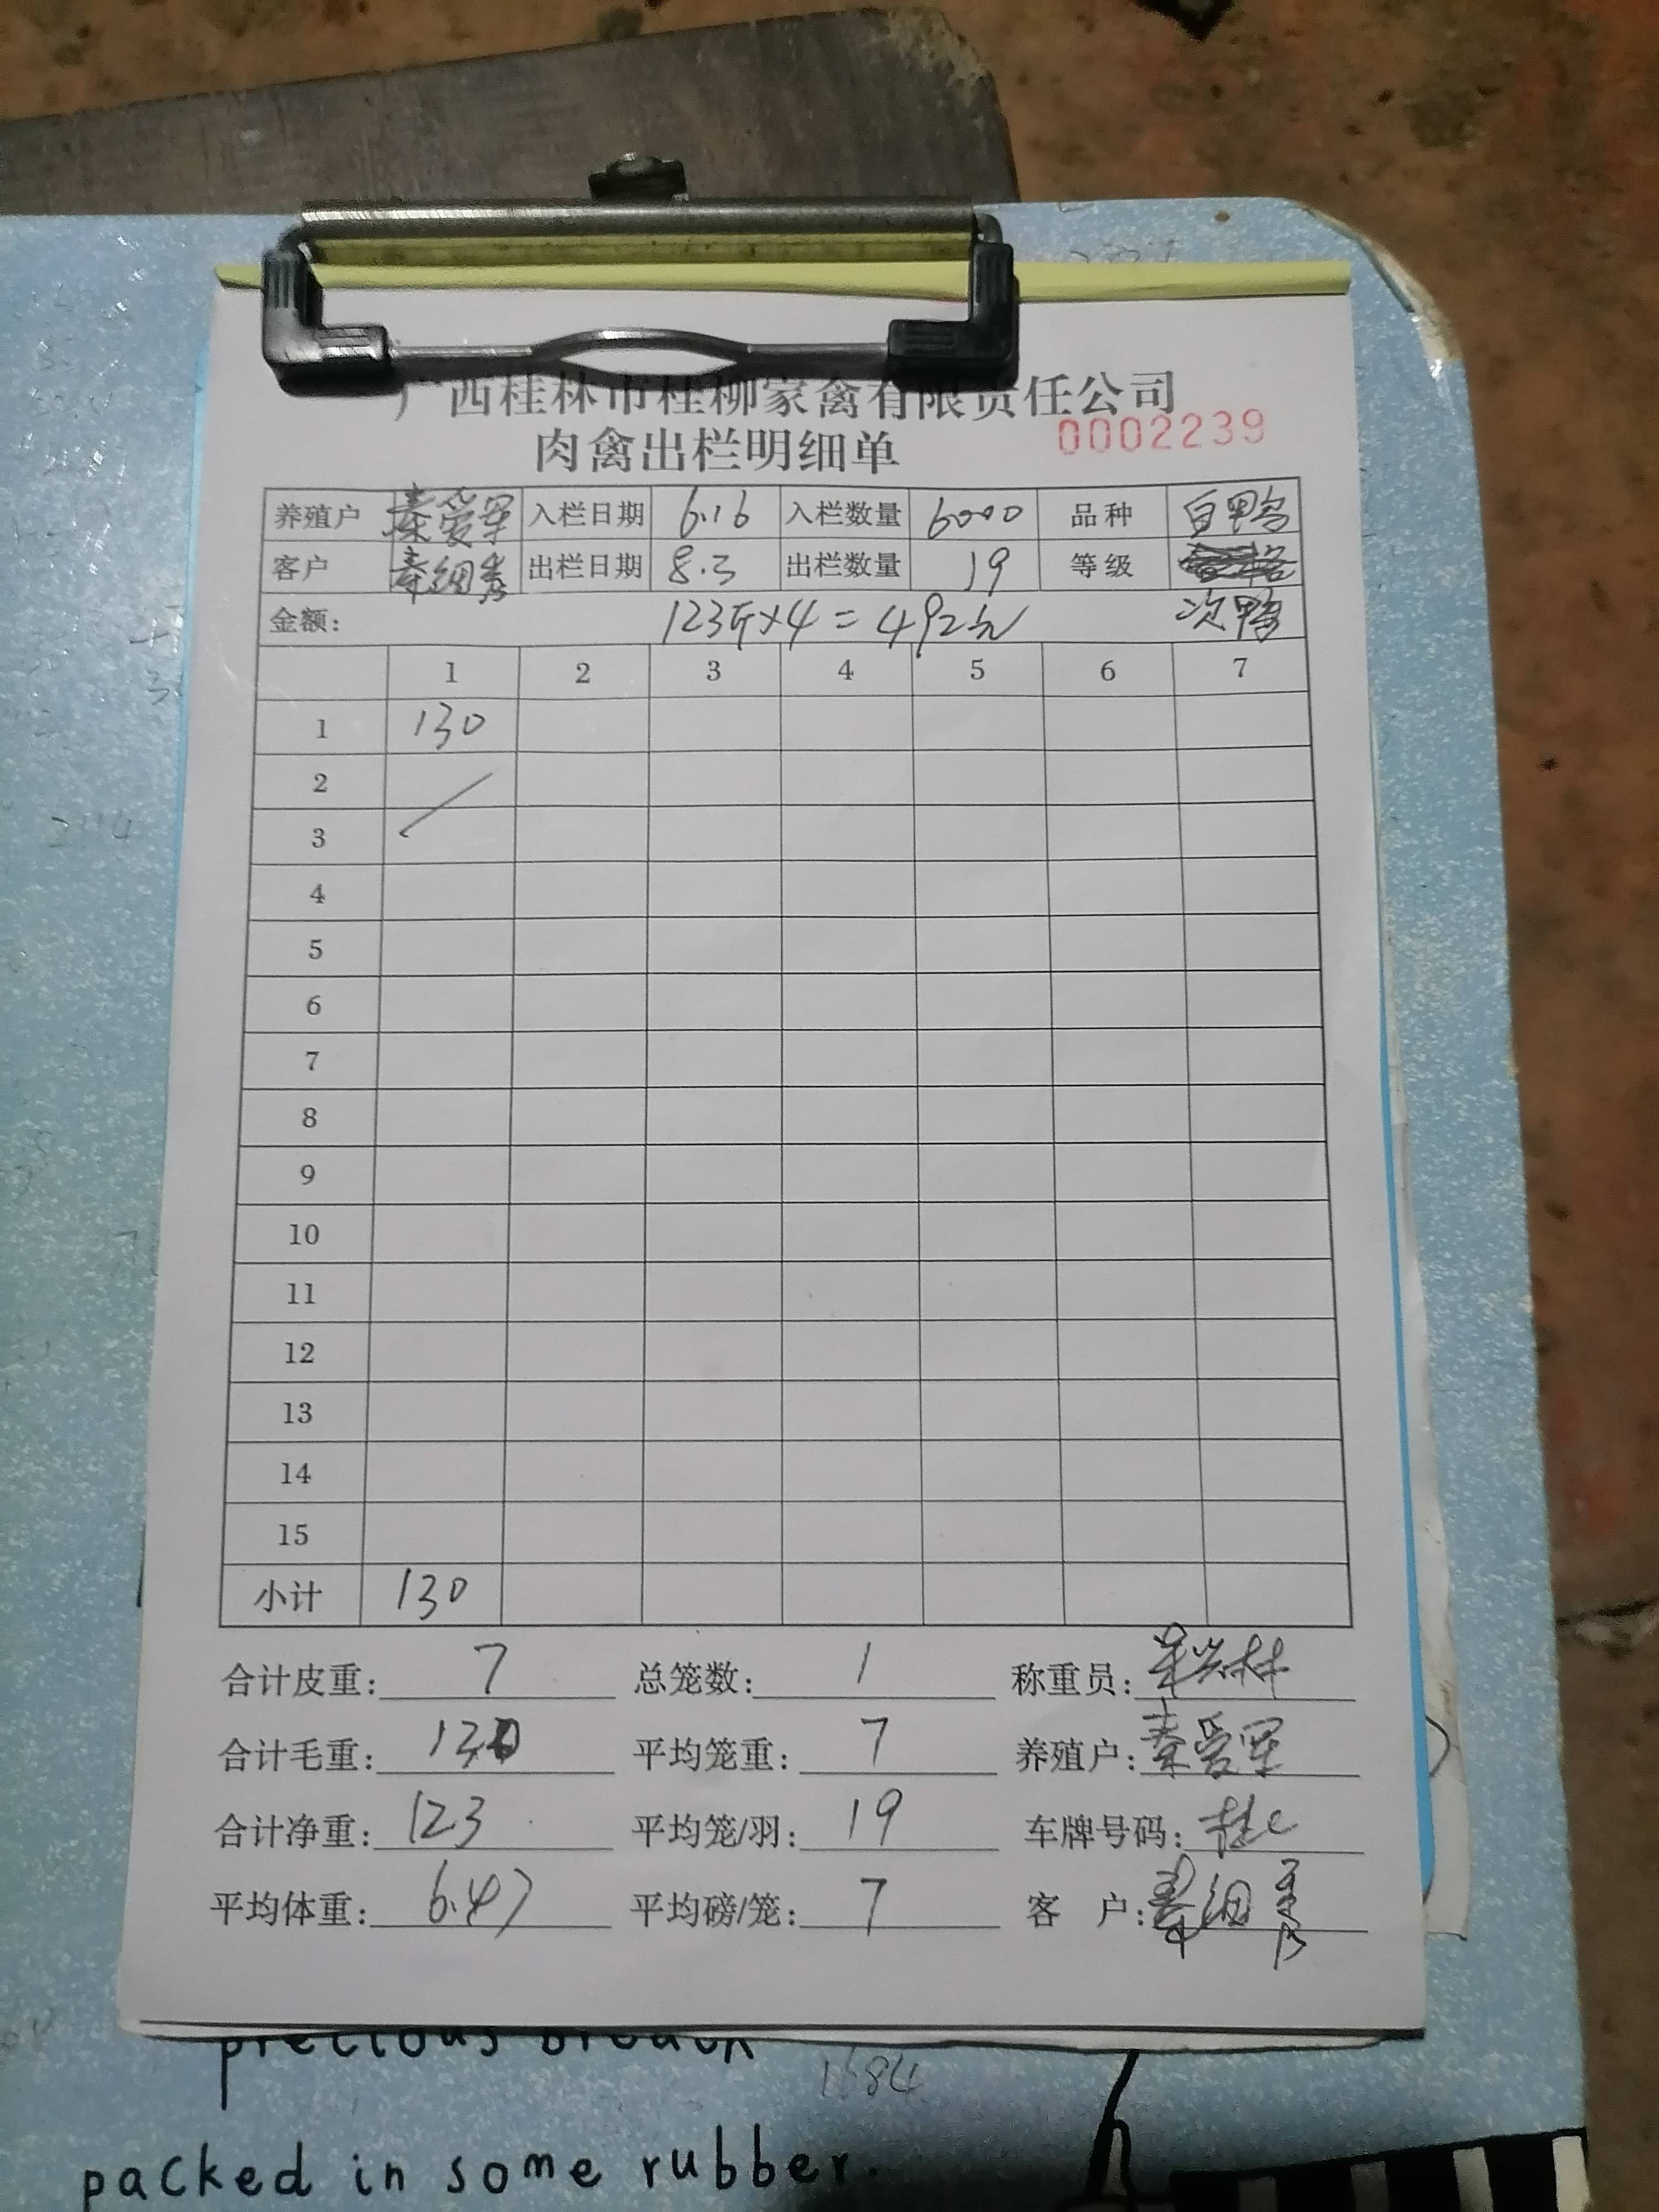 广西桂林市桂柳家禽有限责任公司
肉禽出栏明细单 0002239
养殖户 秦爱军 入栏日期 6.16 入栏数量 6000 品种 白鸭
客户 秦细秀 出栏日期 8.3 出栏数量 19 等级
金额: 123斤×4=492元 次鸭
1 2 3 4 5 6 7
1 130
2
3
4
5
6
7
8
9
10
11
12
13
14
15
小计 130
合计皮重: 7 总笼数: 1 称重员:
合计毛重: 130 平均笼重: 7 养殖户: 秦爱军
合计净重: 123 平均笼/羽: 19 车牌号码: 桂C
平均体重: 6.47 平均磅/笼: 7 客户: 秦细秀
1684
packed in some rubber.